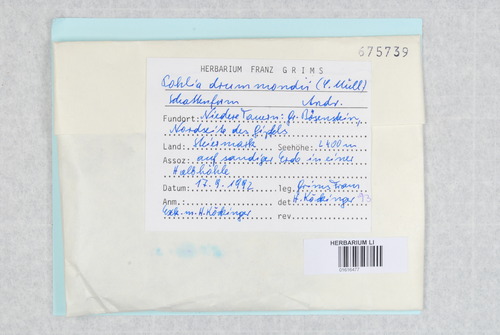 675739
HERBARIUM FRANZ GRIMS
Pohlia drummondii (C. Müll)
Schattenform Andr.
Fundort: Niedere Tauern: Gr. Bösenstein,
Nordseite des Gipfels
Land: Steiermark Seehöhe: 2400 m
Assoz: auf sandiger Erde in einer
Halbhöhle
Datum: 17.9.1992 leg. Grims Franz
Anm.: det. H. Köckinger 93
Exk. m. H. Köckinger rev.
HERBARIUM LI